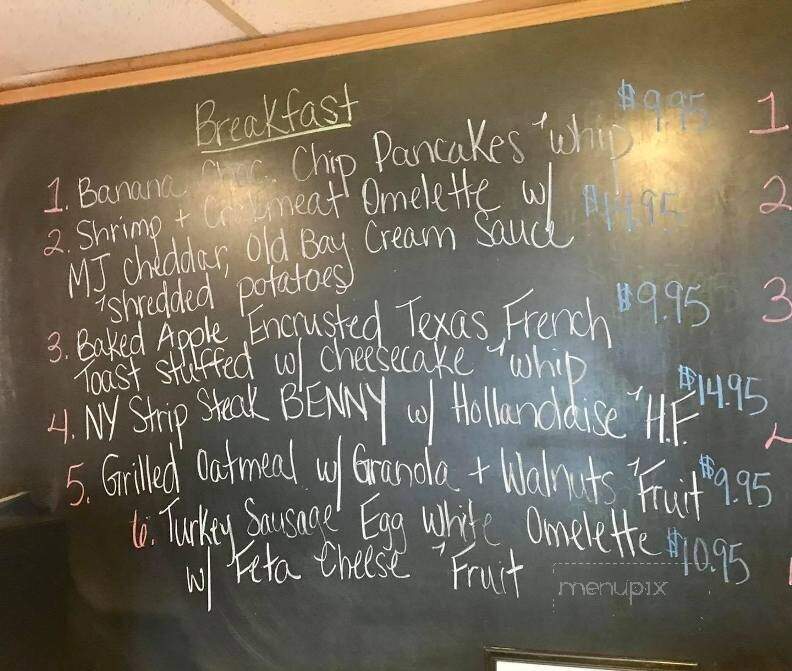 Breakfast
1. Banana Choc. Chip Pancakes + whip $9.95
2. Shrimp + Crabmeat Omelette w/ $14.95
MJ cheddar, Old Bay Cream Sauce
+ shredded potatoes
3. Baked Apple Encrusted Texas French $9.95
Toast stuffed w/ cheesecake + whip
4. NY Strip Steak BENNY w/ Hollandaise + H.F. $14.95
5. Grilled Oatmeal w/ Granola + Walnuts + Fruit $9.95
6. Turkey Sausage Egg White Omelette $10.95
w/ Feta Cheese + Fruit
1.
2
3
menupix